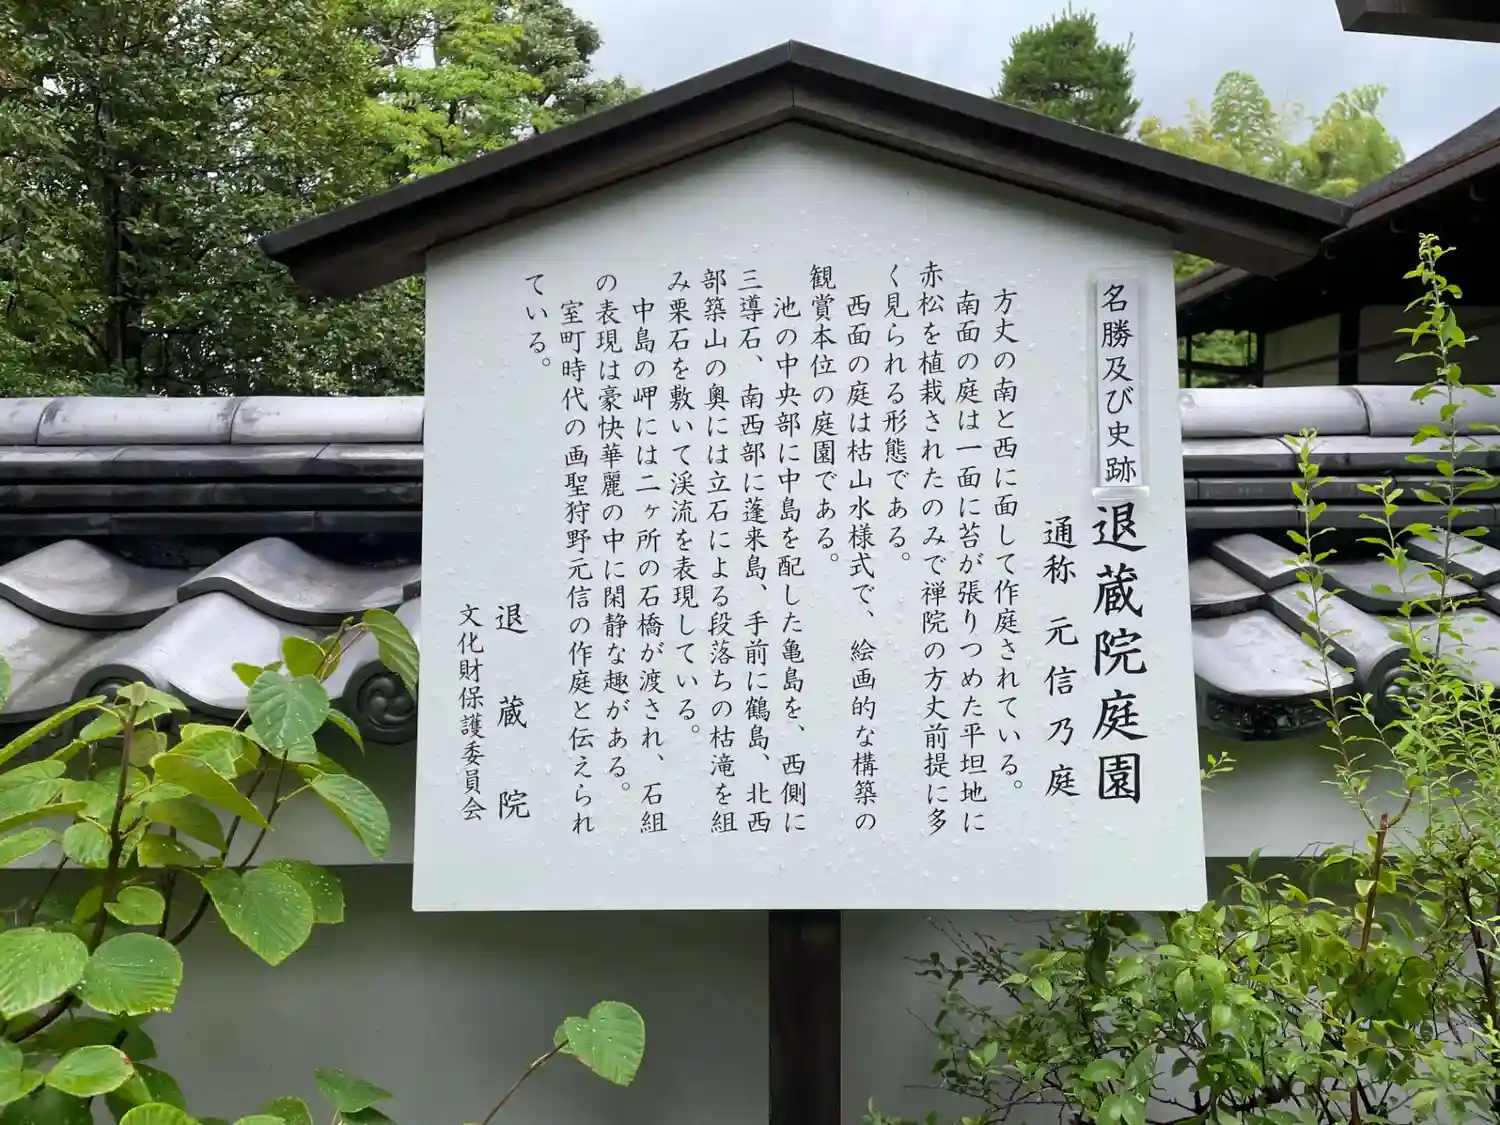 名勝及び史跡 退蔵院庭園
通称 元信乃庭
方丈の南と西に面して作庭されている。
南面の庭は一面に苔が張りつめた平坦地に
赤松を植栽されたのみで禅院の方丈前提に多
く見られる形態である。
西面の庭は枯山水様式で、絵画的な構築の
観賞本位の庭園である。
池の中央部に中島を配した亀島を、西側に
三導石、南西部に蓬来島、手前に鶴島、北西
部築山の奥には立石による段落ちの枯滝を組
み栗石を敷いて渓流を表現している。
中島の岬には二ヶ所の石橋が渡され、石組
の表現は豪快華麗の中に閑静な趣がある。
室町時代の画聖狩野元信の作庭と伝えられ
ている。
退蔵院
文化財保護委員会